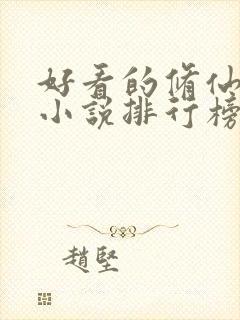 好看的脩仙
小說排行榜
趙堅